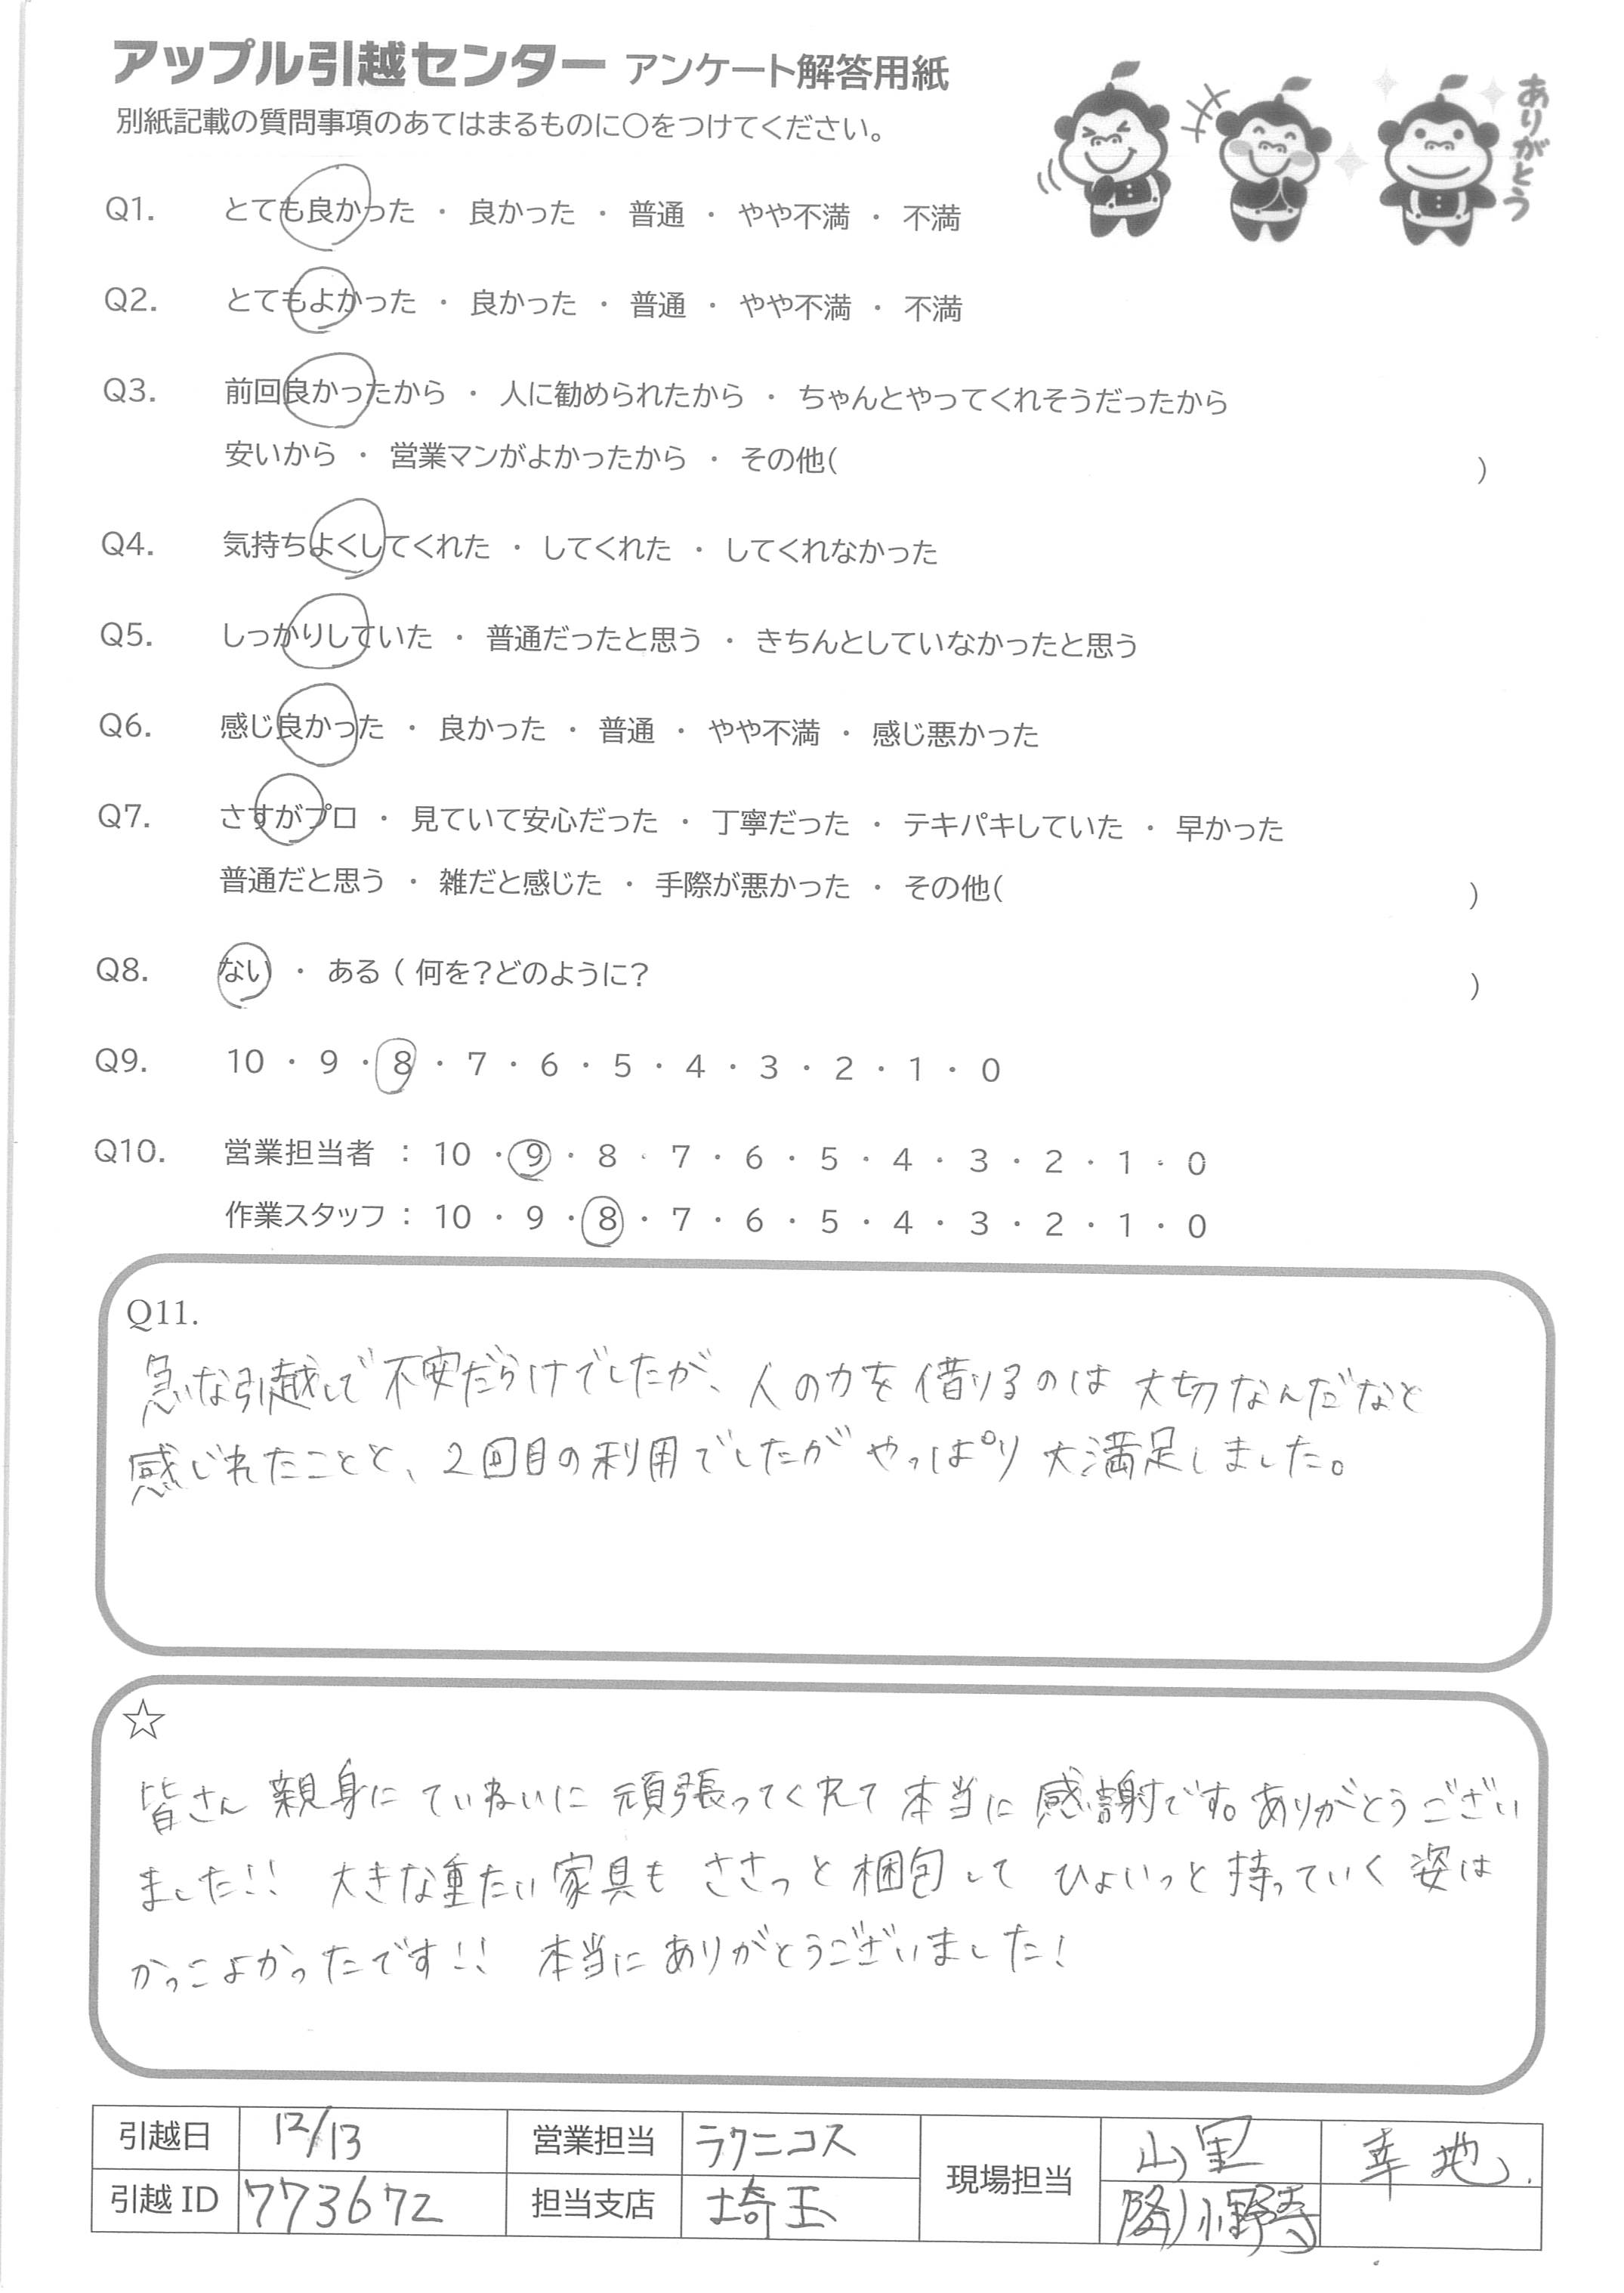 アップル引越センター アンケート解答用紙
ありがとう
別紙記載の質問事項のあてはまるものに○をつけてください。
Q1. とても良かった ・ 良かった ・ 普通 ・ やや不満 ・ 不満
Q2. とてもよかった ・ 良かった ・ 普通 ・ やや不満 ・ 不満
Q3. 前回良かったから ・ 人に勧められたから ・ ちゃんとやってくれそうだったから
安いから ・ 営業マンがよかったから ・ その他( )
Q4. 気持ちよくしてくれた ・ してくれた ・ してくれなかった
Q5. しっかりしていた ・ 普通だったと思う ・ きちんとしていなかったと思う
Q6. 感じ良かった ・ 良かった ・ 普通 ・ やや不満 ・ 感じ悪かった
Q7. さすがプロ ・ 見ていて安心だった ・ 丁寧だった ・ テキパキしていた ・ 早かった
普通だと思う ・ 雑だと感じた ・ 手際が悪かった ・ その他( )
Q8. ない ・ ある ( 何を?どのように? )
Q9. 10 ・ 9 ・ 8 ・ 7 ・ 6 ・ 5 ・ 4 ・ 3 ・ 2 ・ 1 ・ 0
Q10. 営業担当者 : 10 ・ 9 ・ 8 ・ 7 ・ 6 ・ 5 ・ 4 ・ 3 ・ 2 ・ 1 ・ 0
作業スタッフ : 10 ・ 9 ・ 8 ・ 7 ・ 6 ・ 5 ・ 4 ・ 3 ・ 2 ・ 1 ・ 0
Q11.
急な引越しで不安だらけでしたが、人の力を借りるのは大切なんだなと
感じれたことと、2回目の利用でしたがやっぱり大満足しました。
☆
皆さん親身にていねいに頑張ってくれて本当に感謝です。ありがとうござい
ました!! 大きな重たい家具もささっと梱包してひょいっと持っていく姿は
かっこよかったです!! 本当にありがとうございました!
引越日 12/13 営業担当 ラクニコス 現場担当 山里 幸地
引越ID 773672 担当支店 埼玉 小野寺